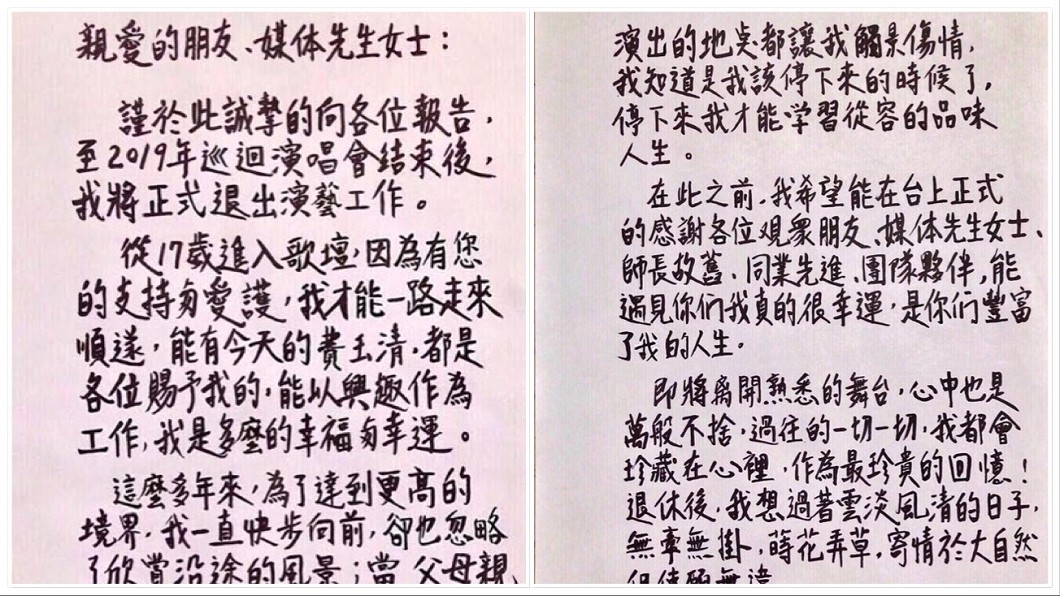 親愛的朋友、媒体先生女士：
謹於此誠摯的向各位報告，
至2019年巡迴演唱會结束後，
我將正式退出演藝工作。
從17歲進入歌壇，因為有您
的支持匀愛護，我才能一路走來
順遂，能有今天的費玉清，都是
各位賜予我的，能以興趣作為
工作，我是多麼的幸福匀幸運。
這麼多年來，為了達到更高的
境界，我一直快步向前，卻也忽略
了欣賞沿途的風景；當父母親
演出的地点都讓我觸景傷情，
我知道是我該停下來的時候了，
停下來我才能学習從容的品味
人生。
在此之前，我希望能在台上正式
的感謝各位观衆朋友、媒体先生女士、
師長故舊、同業先進、團隊夥伴，能
遇見你们我真的很幸運，是你们豐富
了我的人生。
即將离開熟悉的舞台，心中也是
萬般不捨，過往的一切一切，我都會
珍藏在心裡，作為最珍貴的回憶！
退休後，我想過著雲淡風清的日子，
無牽無掛，蒔花弄草，寄情於大自然